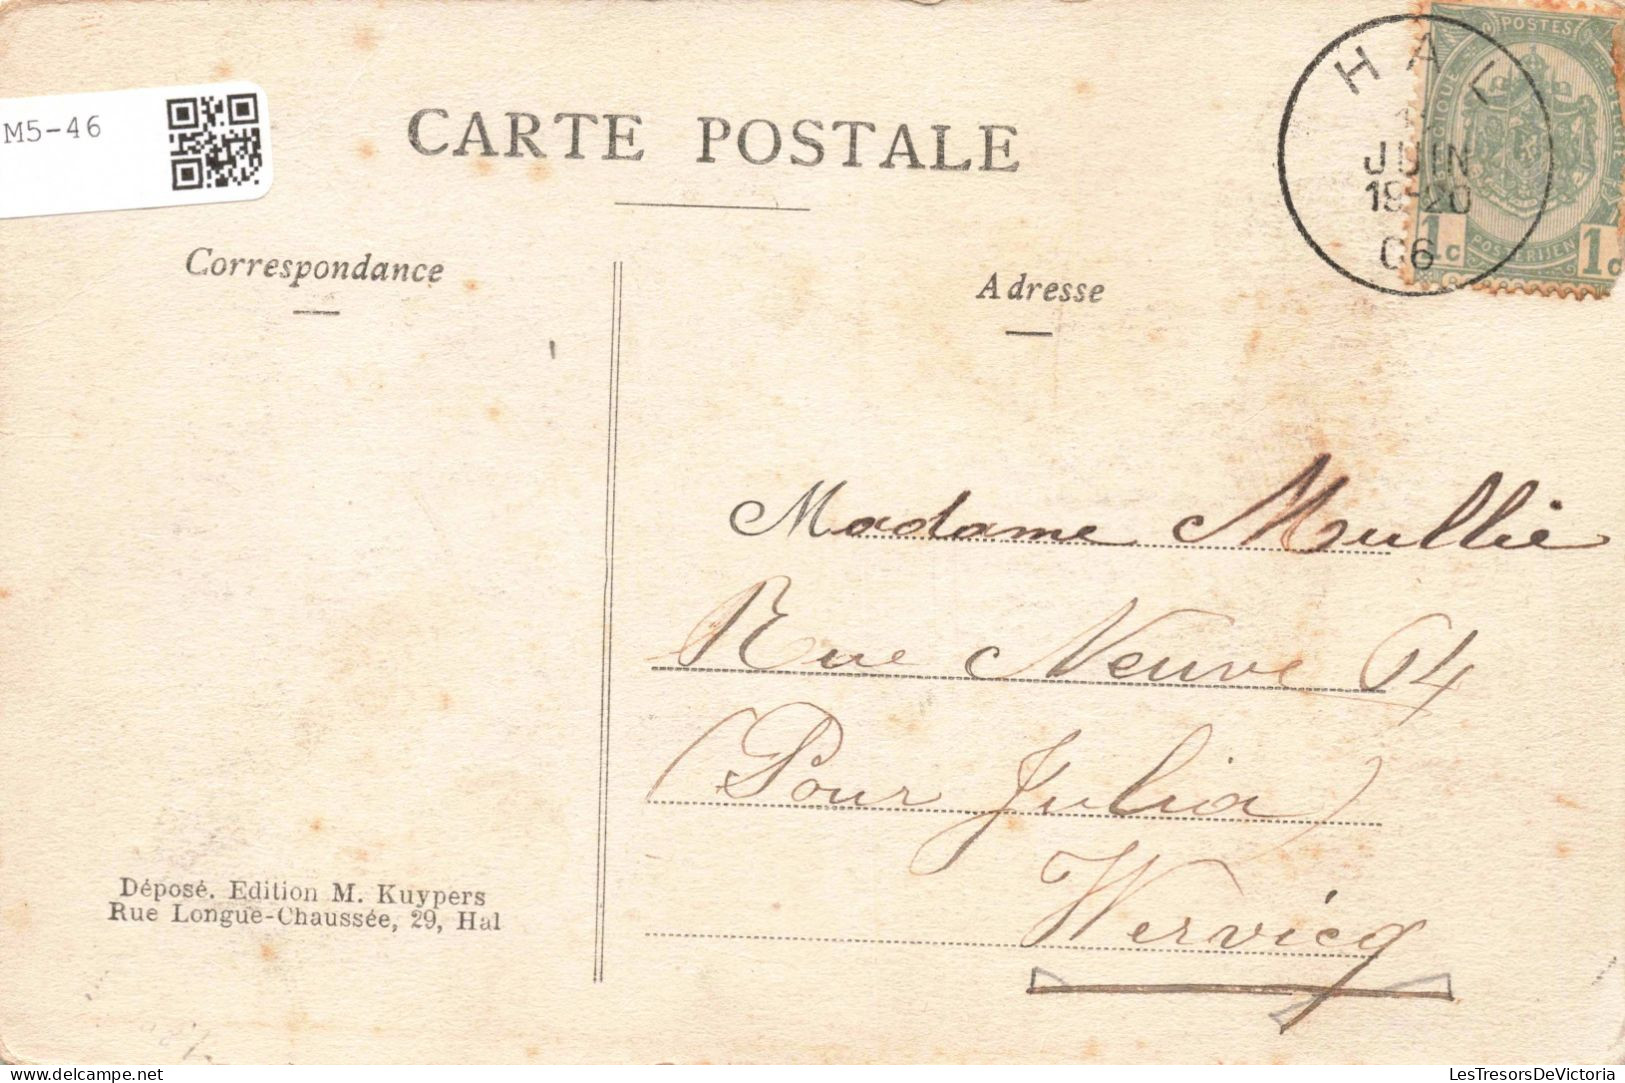 M5-46
CARTE POSTALE
HAL
JUIN
19-20
06
POSTES
BELGIQUE
BELGIE
POSTERIJEN
1c
1c
Correspondance
Adresse
Madame Mullie
Rue Neuve 64
(Pour Julia)
Wervicq
Déposé. Edition M. Kuypers
Rue Longue-Chaussée, 29, Hal
LesTresorsDeVictoria
delcampe.net